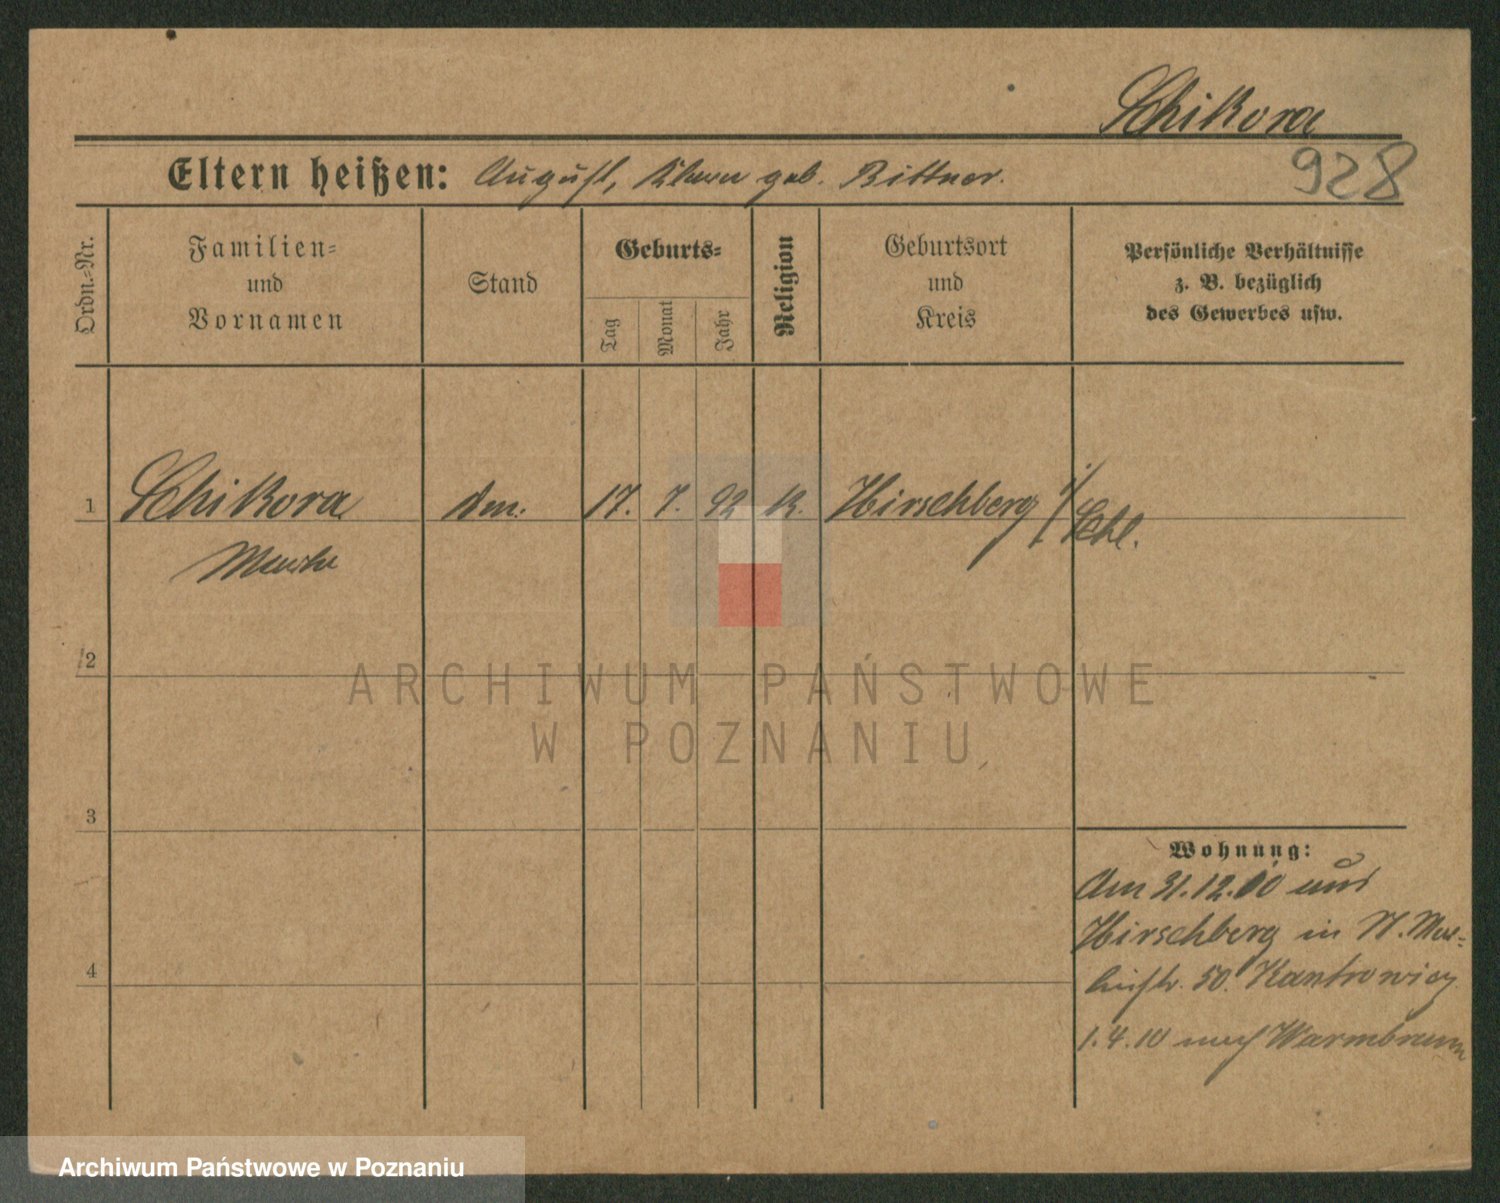 Schikora
928
Eltern heißen: August, geb. Bittner.
Ordn.=Nr.
Familien=
und
Vornamen
Stand
Geburts=
Tag
Monat
Jahr
Religion
Geburtsort
und
Kreis
Persönliche Verhältnisse
z. B. bezüglich
des Gewerbes usw.
1 Schikora 17. 7. 92 K. Hirschberg i/Schl.
2
3
4
ARCHIWUM PAŃSTWOWE
W POZNANIU
Wohnung:
Am 31.12. aus
Hirschberg in N. Mar=
tinstr. 50. Kantrowicz
1.4.10 nach Warmbrunn
Archiwum Państwowe w Poznaniu